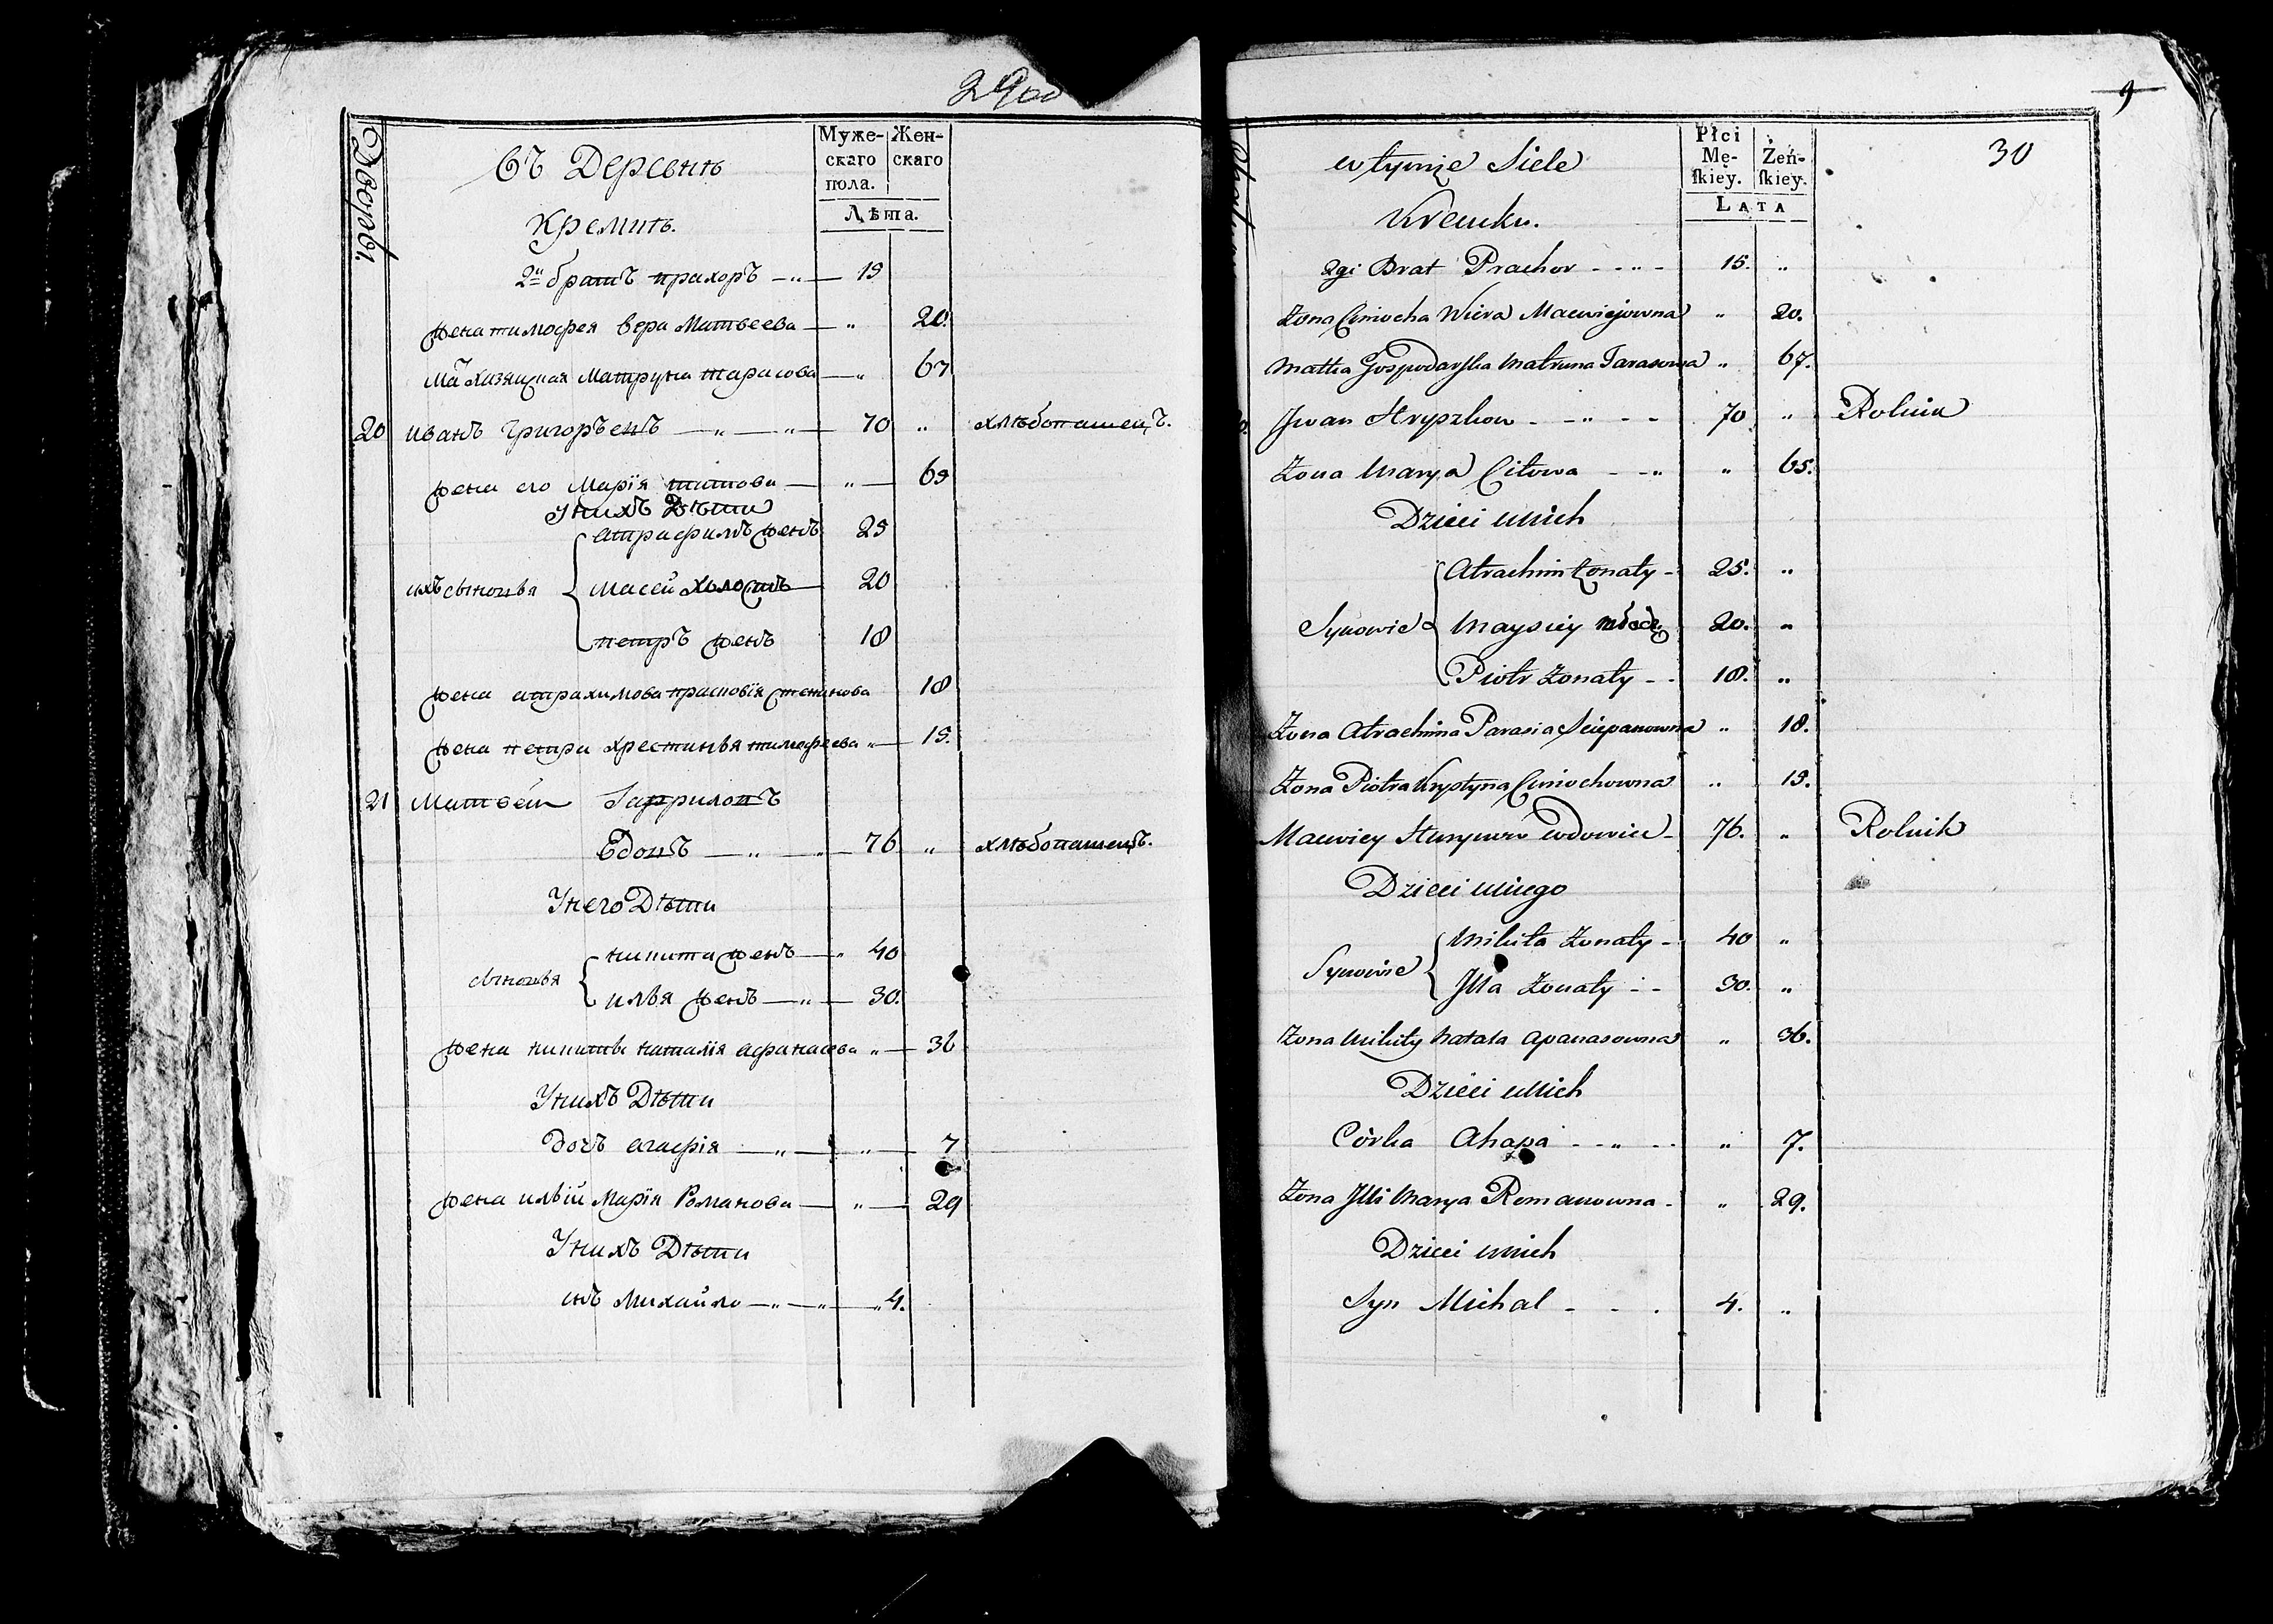 290б
Дворы.
Въ Деревнѣ
Муже-
скаго
пола.
Жен-
скаго
Кремнѣ.
Лѣта.
2й братъ прахоръ — „ — 15
жена тимофея вера Матвеева — „ 20.
Мат хазяиская Матруна тарасова — „ 67
20 иванъ Григорьевъ — „ — „ — 70 „ хлѣбопашецъ.
жена его Марїя титова — „ — 65
У нихъ Дѣти
атрафимъ женъ 25
ихъ сыновья { масей холостъ 20
петръ женъ 18
жена атрахимова прасковїя степанова 18
жена петра хрестинья тимофеева „ — 15.
21 Матвей Гавриловъ
Вдовъ — „ — „ — 76 „ хлѣбопашецъ.
У него Дѣти
никита женъ — „ 40
сыновья { илья женъ — „ — 30.
жена никиты наталїя афанасева „ — 36
У нихъ Дѣти
дочъ агафїя — „ — „ — 7
жена ильїй Марїя Романова — „ — 29
У нихъ Дѣти
нъ Михайло — „ — „ — „ 4.
9
30
w tymże Siele
Płci
Mę-
ſkiey.
Żeń-
ſkiey.
Kremku.
LATA
2gi Brat Prachor - - „ - 15. „
Żona Cimocha Wiera Maciwiejowna „ 20.
Matka Gospodarska Matruna Tarasowna „ 67.
Jwan Hryszkow - - „ - - 70 „ Rolnik
Żona Marya Citowa - - „ „ 65.
Dzieci u nich
Atrachim Żonaty - 25. „
Synowie { Maysiey młodz. 20. „
Piotr Żonaty - - 18. „
Żona Atrachima Parasia Sciepanowna „ 18.
Żona Piotra Krystyna Cimochowna „ 15.
Maciwiey Hurynow wdowiec - 76. „ Rolnik
Dzieci u niego
Mikita Żonaty - 40 „
Synowie { Jlla Żonaty - - 30. „
Żona Mikity Natala Apanasowna „ 36.
Dzieci u nich
Córka Ahapa - - „ - - „ 7.
Żona Jlli Marya Romanowna - „ 29.
Dzieci u nich
Syn Michał - - . 4. „